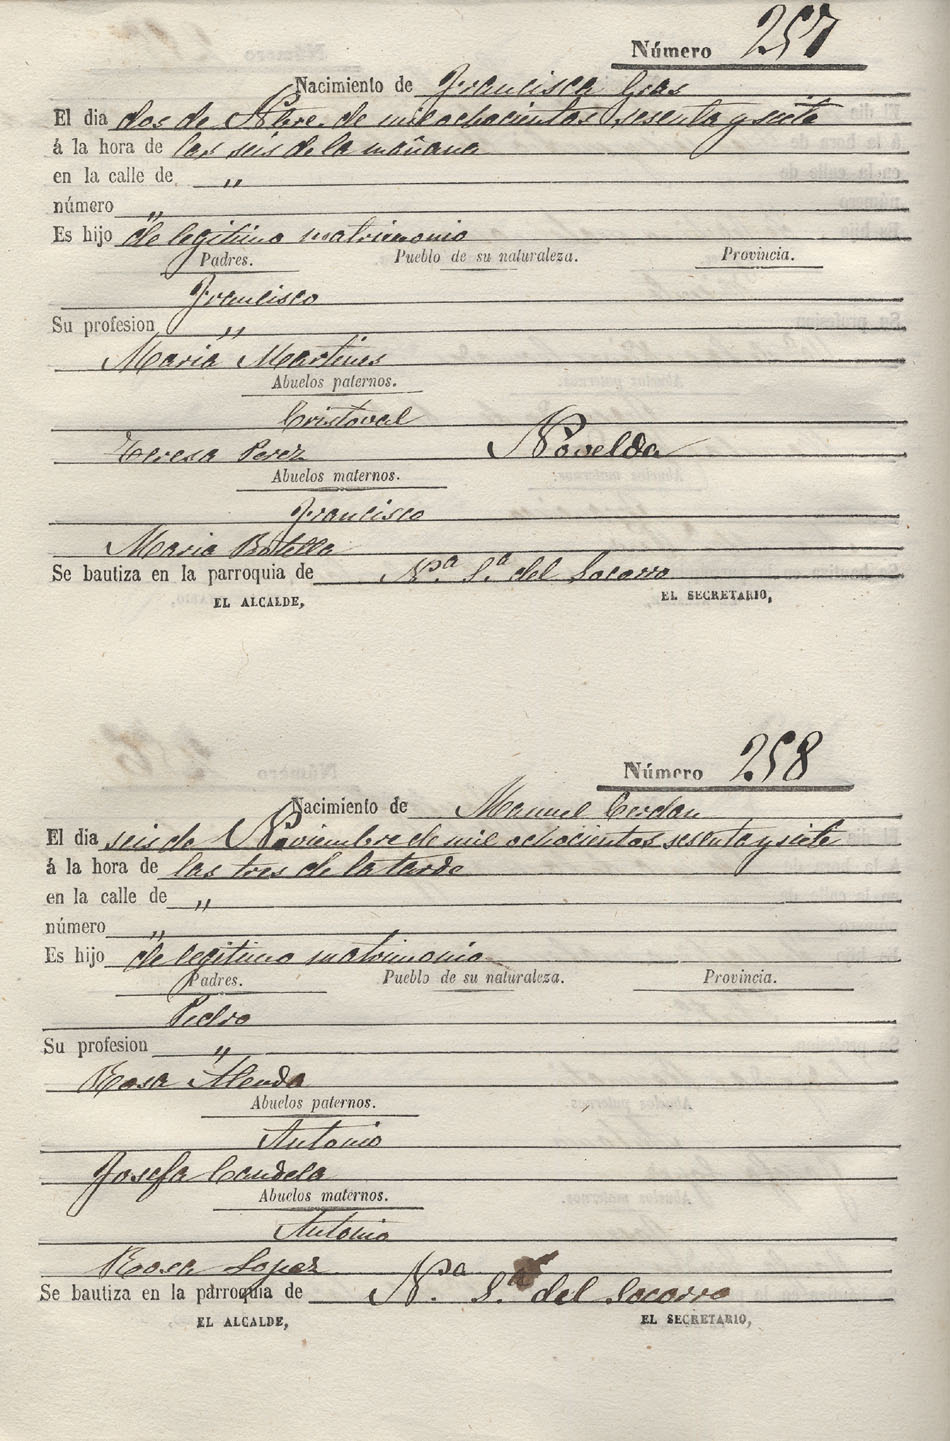 Número 257
Nacimiento de Francisca Gras
El dia dos de Nbre. de mil ochocientos sesenta y siete
á la hora de las seis de la mañana
en la calle de „
número „
Es hijo de legitimo matrimonio
Padres. Pueblo de su naturaleza. Provincia.
Francisco
Su profesion „
Maria Martines
Abuelos paternos.
Cristoval
Teresa Perez Novelda
Abuelos maternos.
Francisco
Maria Botella
Se bautiza en la parroquia de N.ª S.ª del Socorro
EL ALCALDE, EL SECRETARIO,
Número 258
Nacimiento de Manuel Cerdan
El dia seis de Noviembre de mil ochocientos sesenta y siete
á la hora de las tres de la tarde
en la calle de „
número „
Es hijo de legitimo matrimonio
Padres. Pueblo de su naturaleza. Provincia.
Pedro
Su profesion „
Rosa Alenda
Abuelos paternos.
Antonio
Josefa Candela
Abuelos maternos.
Antonio
Rosa Lopez
Se bautiza en la parroquia de N.ª S.ª del Socorro
EL ALCALDE, EL SECRETARIO,